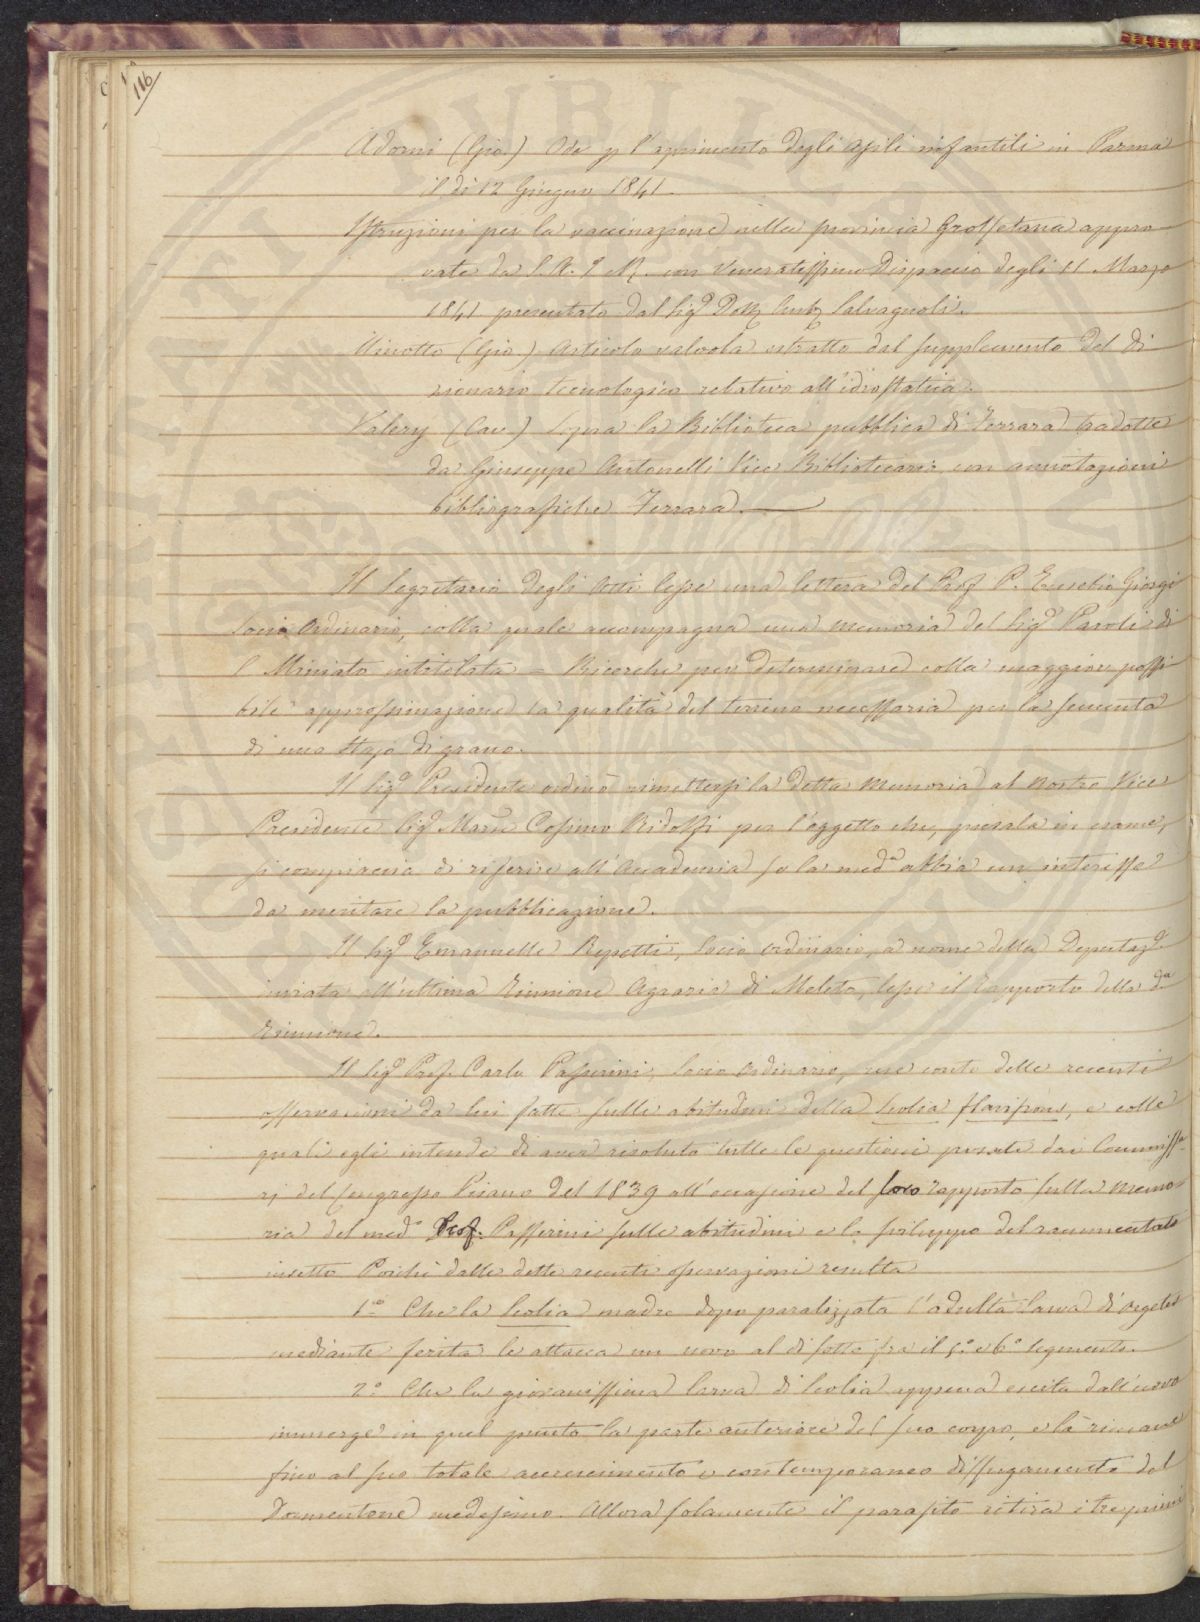 116
Adorni (Gio.) Ode p l'aprimento degli asili infantili in Parma
il dì 12 Giugno 1841.
Istruzioni per la vaccinazione nella provincia Grossetana appro
vate da S. A. I. e R. con Veneratissimo Dispaccio degli 11 Marzo
1841 presentato dal Sigr Dottr Antº Salvagnoli.
Minotto (Gio.) Articolo valvola estratto dal supplemento del Di
zionario tecnologico relativo all'idrostatica.
Valery (Cav.) Sopra la Biblioteca pubblica di Ferrara tradotte
da Giuseppe Antonelli Vice Bibliotecario con annotazioni
bibliografiche Ferrara.
Il Segretario degli Atti lesse una lettera del Prof P. Eusebio Giorgi
Socio Ordinario, colla quale accompagna una memoria del Sigr Paroli di
S Miniato intitolata = Ricerche per determinare colla maggiore possi-
bile approssimazione la qualità del terreno necessaria per la sementa
di uno stajo di grano.
Il Sigr Presidente ordinò rimettersi la detta Memoria al nostro Vice
Presidente Sigr March Cosimo Ridolfi per l'oggetto che, presala in esame,
si compiaccia di riferire all'Accademia se la meda abbia un interesse
da meritare la pubblicazione.
Il Sigr Emanuelle Repetti, Socio ordinario, a nome della Deputaze
inviata all'ultima Riunione Agraria di Meleto, lesse il rapporto della da
Riunione.
Il Sigr Prof. Carlo Passerini, Socio Ordinario, rese conto delle recenti
osservazioni da lui fatte sulle abitudini della Scolia flavifrons, e colle
quali egli intende di aver risoluto tutte le questioni possate dai Commissa-
rj del Congresso Pisano del 1839 all'occasione del loro rapporto sulla memo
ria del medo Prof. Passerini sulle abitudini e lo sviluppo del rammentato
insetto Poichè dalle dette recenti osservazioni resulta
1.º Che la Scolia madre dopo paralizzata l'adulta larva d'Orgetes
mediante ferita le attacca un uovo al di sotto fra il 5.º e 6.º segmento.
2.º Che la giovanissima larva di Scolia appena escita dall'uovo
immerge in quel punto la parte anteriore del suo corpo, e là rimane
fino al suo totale accrescimento e contemporaneo disfugamento del
Dormentone medesimo. Allora solamente il parasito ritira i tre primi